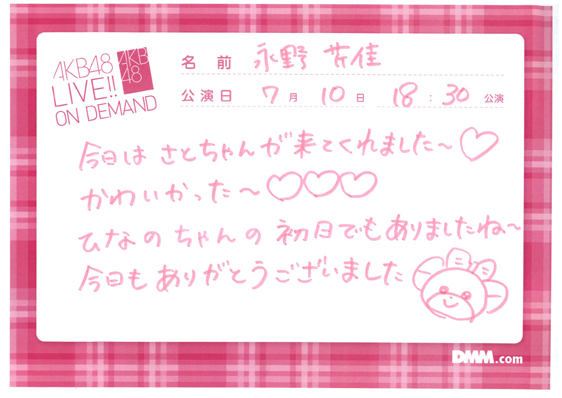 AKB48
LIVE!!
ON DEMAND
AKB
48
名前 永野 芹佳
公演日 7月 10日 18:30 公演
今日は さとちゃんが来てくれました〜♡
かわいかった〜♡♡♡
ひなのちゃんの初日でもありましたね〜
今日もありがとうございました
DMM.com